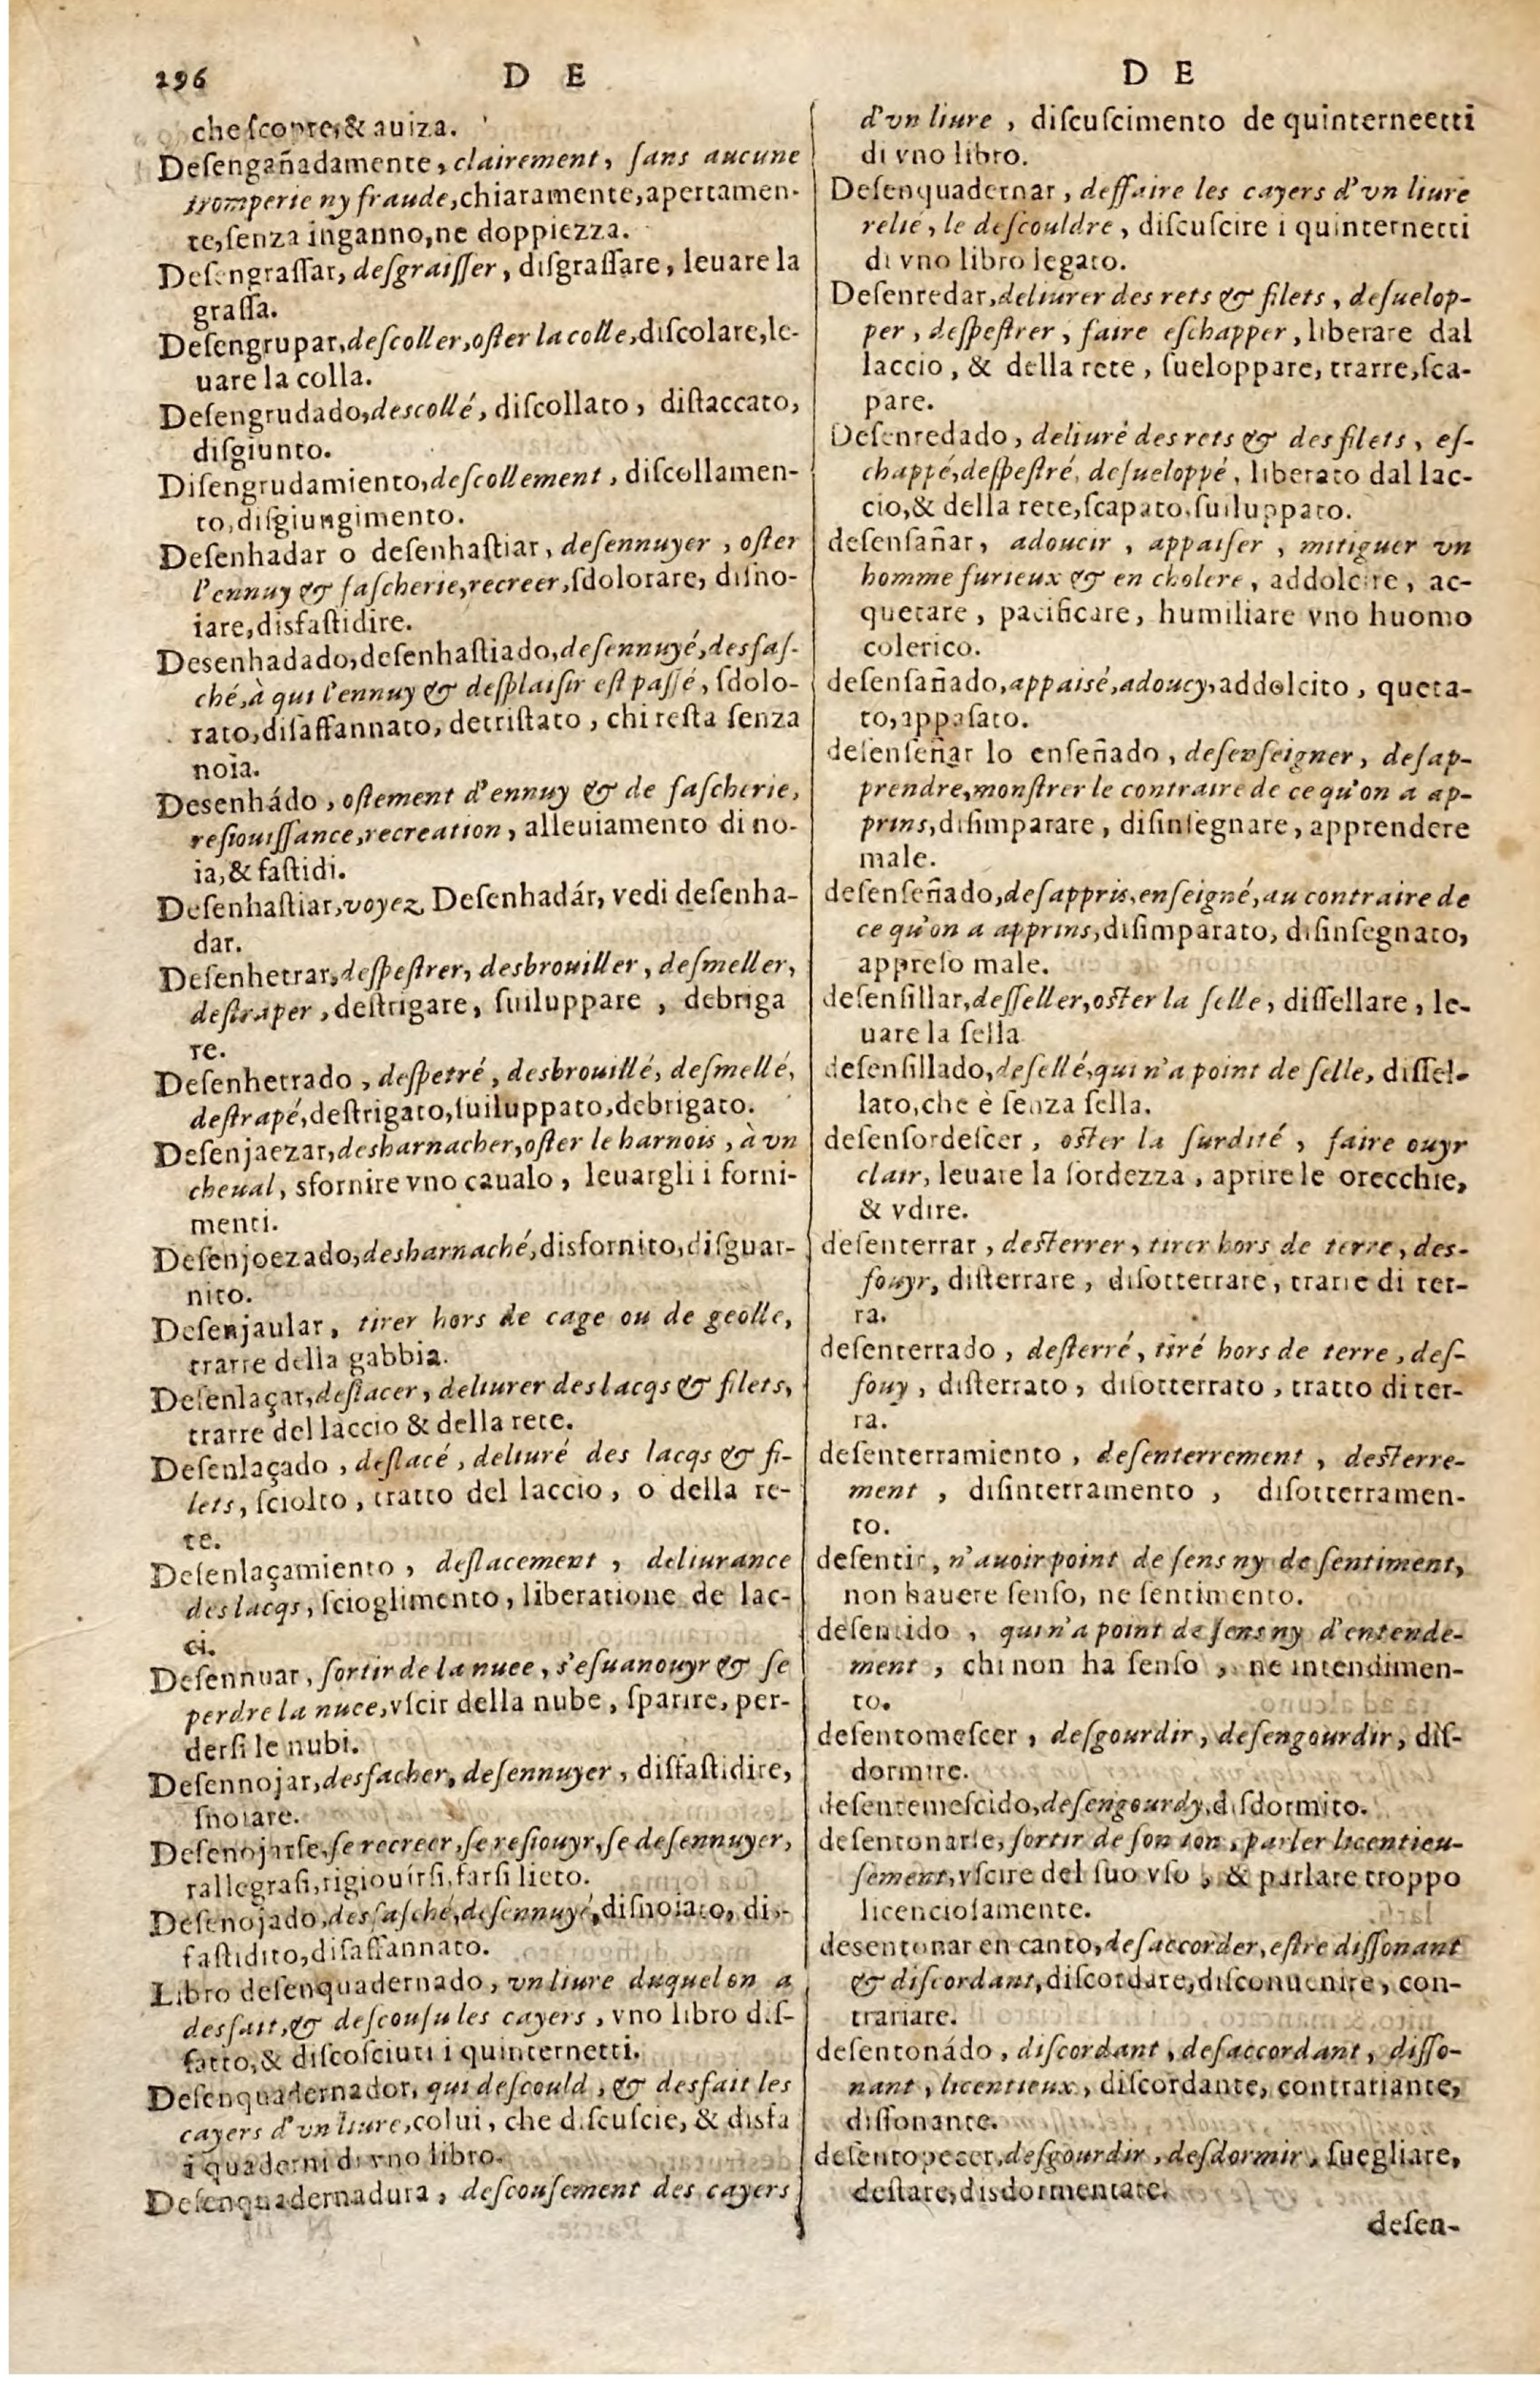 296 D E
che ſcopre, & auiza.
Deſengañadamente, clairement, ſans aucune
tromperie ny fraude, chiaramente, apertamen-
te, ſenza inganno, ne doppiezza.
Deſengraſſar, deſgraiſſer, diſgraſſare, leuare la
graſſa.
Deſengrupar, deſcoller, oſter la colle, diſcolare, le-
uare la colla.
Deſengrudado, descollé, diſcollato, diſtaccato,
diſgiunto.
Diſengrudamiento, deſcollement, diſcollamen-
to, diſgiungimento.
Deſenhadar o deſenhaſtiar, deſennuyer, oſter
l'ennuy & faſcherie, recreer, ſdolorare, diſno-
iare, disfaſtidire.
Desenhadado, deſenhaſtiado, deſennuyé, desfaſ-
ché, à qui l'ennuy & deſplaiſir eſt paſſé, ſdolo-
rato, diſaffannato, detriſtato, chi reſta ſenza
noia.
Desenhádo, oſtement d'ennuy & de faſcherie,
reſiouiſſance, recreation, alleuiamento di no-
ia, & faſtidi.
Deſenhaſtiar, voyez Deſenhadár, vedi deſenha-
dar.
Deſenhetrar, deſpeſtrer, desbrouiller, deſmeller,
deſtraper, deſtrigare, ſuiluppare, debriga
re.
Deſenhetrado, deſpetré, desbrouillé, deſmellé,
deſtrapé, deſtrigato, ſuiluppato, debrigato.
Deſenjaezar, desharnacher, oſter le harnois, à vn
cheual, sfornire vno caualo, leuargli i forni-
menti.
Deſenjoezado, desharnaché, disfornito, diſguar-
nito.
Deſenjaular, tirer hors de cage ou de geolle,
trarre della gabbia.
Deſenlaçar, deſlacer, deliurer des lacqs & filets,
trarre del laccio & della rete.
Deſenlaçado, deſlacé, deliuré des lacqs & fi-
lets, ſciolto, tratto del laccio, o della re-
te.
Deſenlaçamiento, deſlacement, deliurance
des lacqs, ſcioglimento, liberatione de lac-
ci.
Deſennuar, ſortir de la nuee, s'eſuanouyr & ſe
perdre la nuee, vſcir della nube, ſparire, per-
derſi le nubi.
Deſennojar, desfacher, deſennuyer, disfaſtidire,
ſnoiare.
Deſenojarſe, ſe recreer, ſe reſiouyr, ſe deſennuyer,
rallegraſi, rigiouirſi, farſi lieto.
Deſenojado, desfaſché, deſennuyé, diſnoiato, diſ-
faſtidito, diſaffannato.
Libro deſenquadernado, vn liure duquel on a
desfait, & deſcouſu les cayers, vno libro diſ-
fatto, & diſcoſciuti i quinternetti.
Deſenquadernador, qui deſcould, & desfait les
cayers d'vn liure, colui, che diſcuſcie, & disfa
i quaderni di vno libro.
Deſenquadernadura, deſcouſement des cayers
D E
d'vn liure, diſcuſcimento de quinterneetti
di vno libro.
Deſenquadernar, deffaire les cayers d'vn liure
relié, le deſcouldre, diſcuſcire i quinternetti
di vno libro legato.
Deſenredar, deliurer des rets & filets, deſuelop-
per, deſpeſtrer, faire eſchapper, liberare dal
laccio, & della rete, ſueloppare, trarre, ſca-
pare.
Deſenredado, deliuré des rets & des filets, eſ-
chappé, deſpeſtré, deſueloppé, liberato dal lac-
cio, & della rete, ſcapato, ſuiluppato.
deſenſañar, adoucir, appaiſer, mitiguer vn
homme furieux & en cholere, addolcire, ac-
quetare, pacificare, humiliare vno huomo
colerico.
deſenſañado, appaisé, adoucy, addolcito, queta-
to, appaſato.
deſenſeñar lo enſeñado, deſenſeigner, deſap-
prendre, monſtrer le contraire de ce qu'on a ap-
prins, diſimparare, diſinſegnare, apprendere
male.
deſenſeñado, deſappris, enſeigné, au contraire de
ce qu'on a apprins, diſimparato, diſinſegnato,
appreſo male.
deſenſillar, deſſeller, oſter la ſelle, diſſellare, le-
uare la ſella.
deſenſillado, deſellé, qui n'a point de ſelle, diſſel-
lato, che è ſenza ſella.
deſenſordeſcer, oſter la ſurdité, faire ouyr
clair, leuare la ſordezza, aprire le orecchie,
& vdire.
deſenterrar, deſterrer, tirer hors de terre, des-
fouyr, diſterrare, diſotterrare, trarre di ter-
ra.
deſenterrado, deſterré, tiré hors de terre, deſ-
fouy, diſterrato, diſotterrato, tratto di ter-
ra.
deſenterramiento, deſenterrement, deſterre-
ment, diſinterramento, diſotterramen-
to.
deſentir, n'auoir point de ſens ny de ſentiment,
non hauere ſenſo, ne ſentimento.
deſentido, qui n'a point de ſens ny d'entende-
ment, chi non ha ſenſo, ne intendimen-
to.
deſentomeſcer, deſgourdir, deſengourdir, diſ-
dormire.
deſentemeſcido, deſengourdy, diſdormito.
deſentonarſe, ſortir de ſon ton, parler licentieu-
ſement, vſcire del ſuo vſo, & parlare troppo
licencioſamente.
desentonar en canto, deſaccorder, eſtre diſſonant
& diſcordant, diſcordare, diſconuenire, con-
trariare.
deſentonádo, diſcordant, deſaccordant, diſſo-
nant, licentieux, diſcordante, contrariante,
diſſonante.
deſentopecer, deſgourdir, deſdormir, ſuegliare,
deſtare, disdormentare.
deſen-